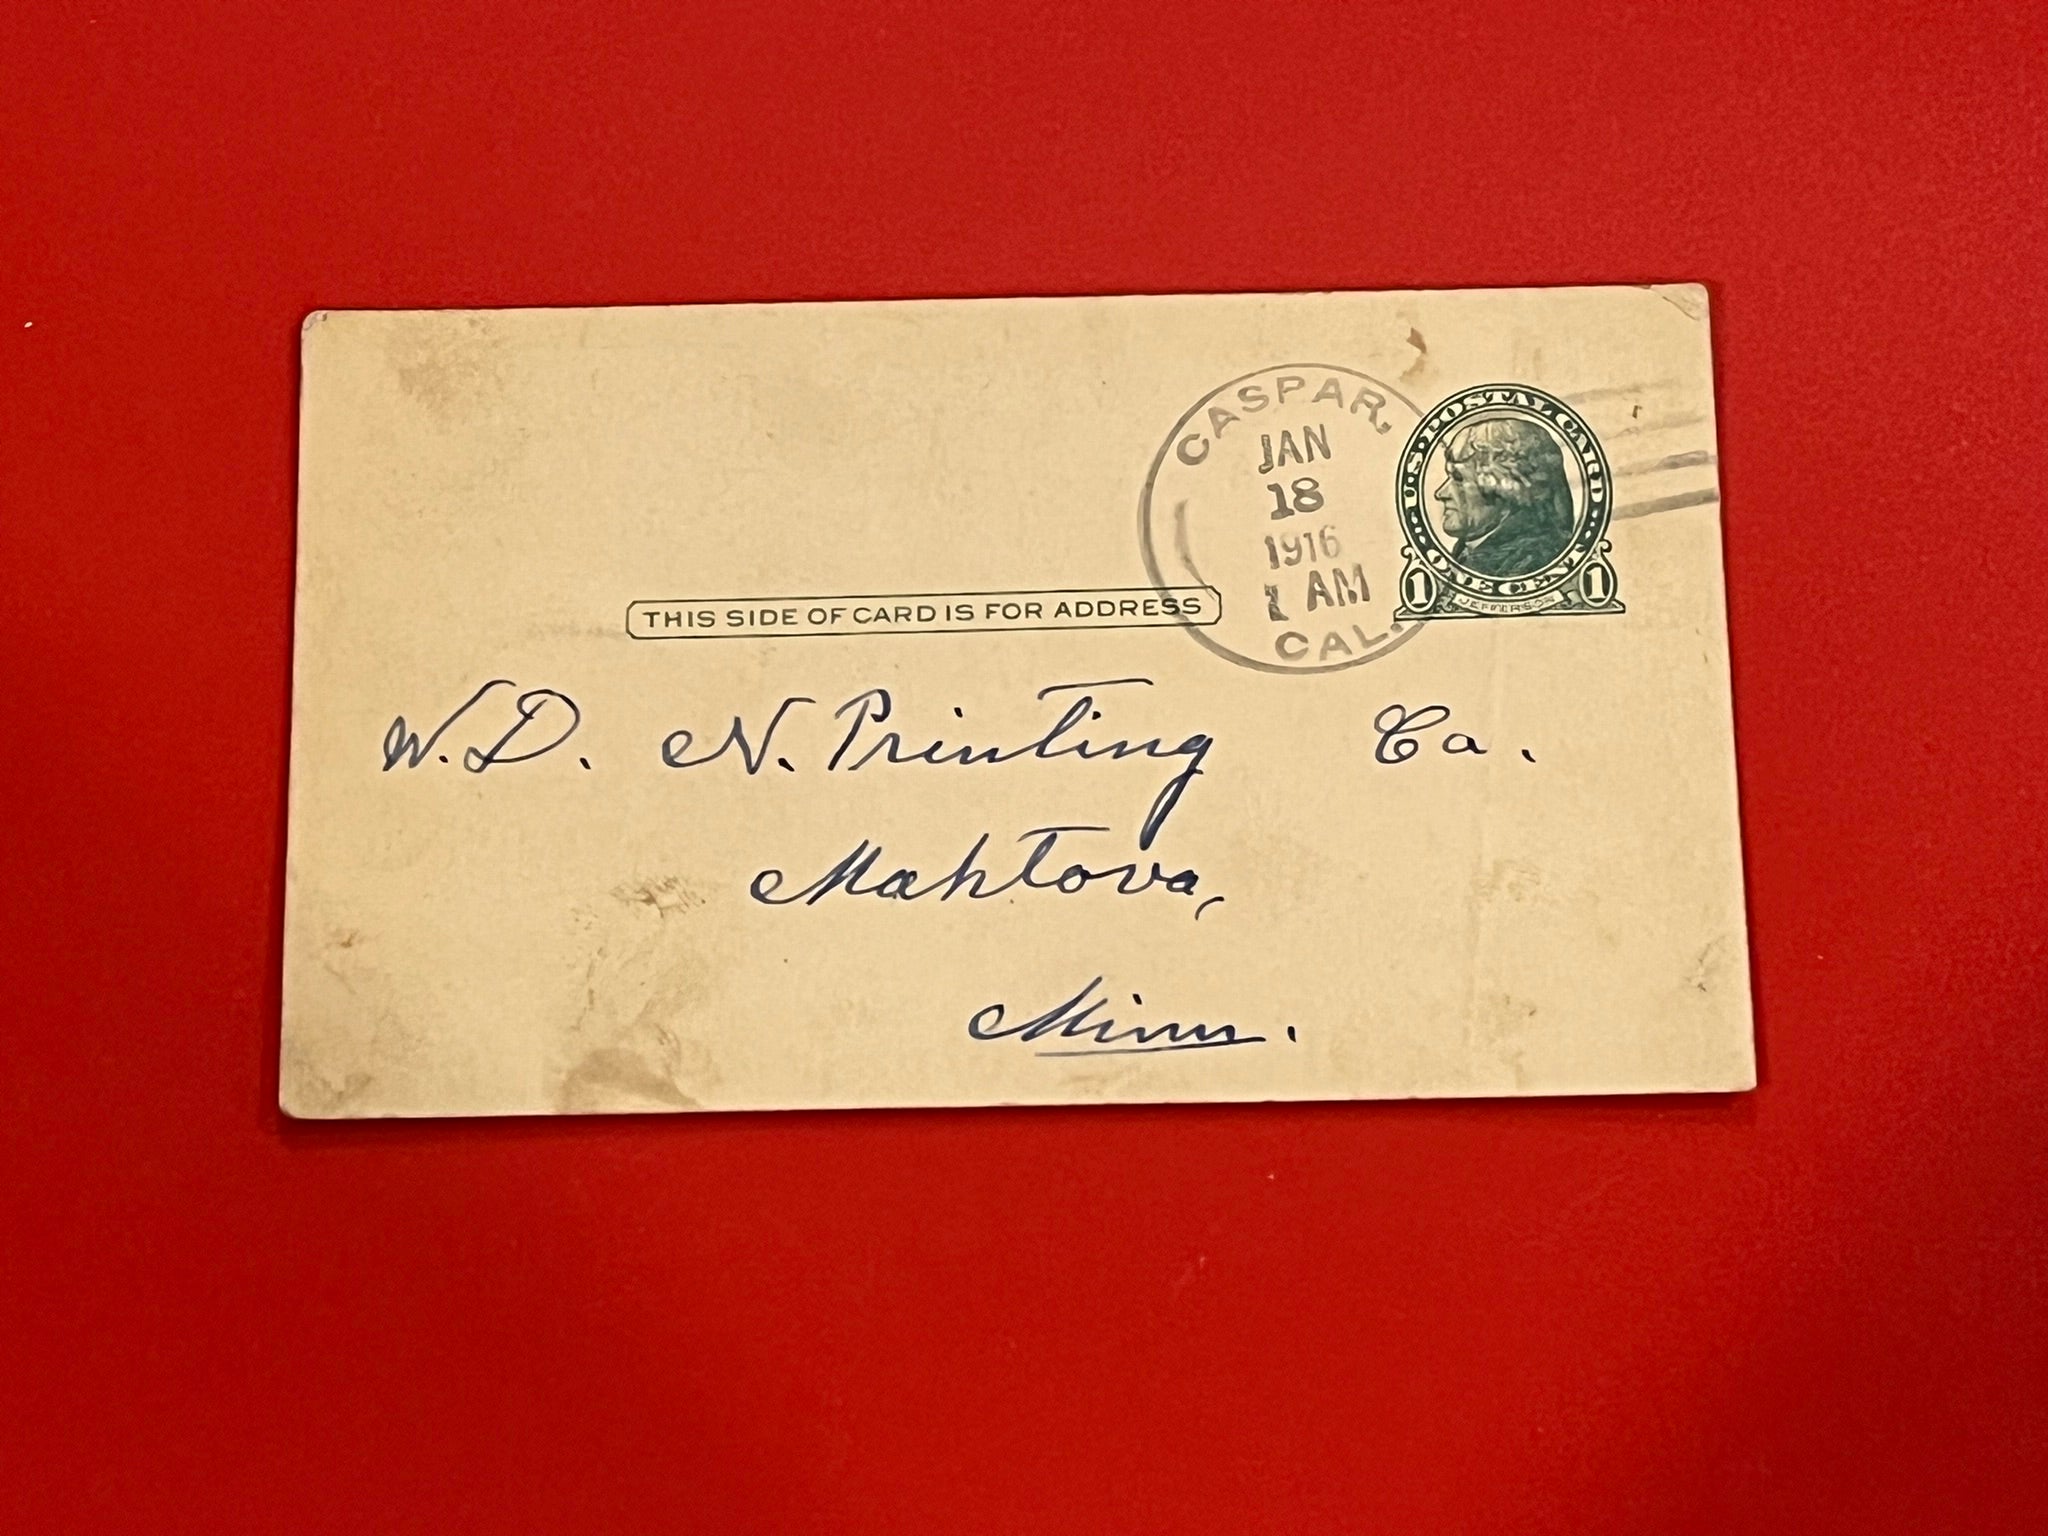 CASPAR,
JAN
18
1916
1 AM
CAL.
U.S. POSTAL CARD
ONE CENT
1 JEFFERSON 1
THIS SIDE OF CARD IS FOR ADDRESS
W. D. N. Printing Co.
Mahtova,
Minn.